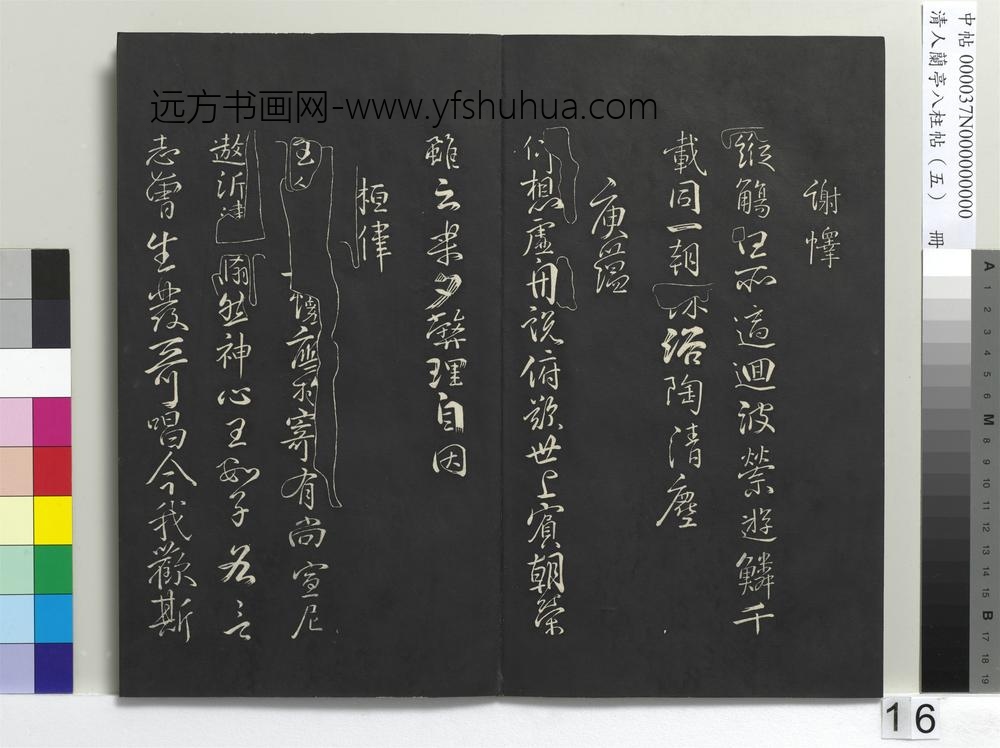 中帖 000037N000000000
清人蘭亭八柱帖（五） 冊
远方书画网-www.yfshuhua.com
謝懌
縱觴任所適迴波縈遊鱗千
載同一朝沐浴陶清塵
庾蘊
仰想虛舟說俯歎世上賓朝榮
雖云樂夕弊理自因
桓偉
主人懷應物寄有尚宣尼
遨沂津翛然神心王數子各言
志曾生發奇唱今我歡斯
16
A 1 2 3 4 5 6 M 8 9 10 11 12 13 14 15 B 17 18 19